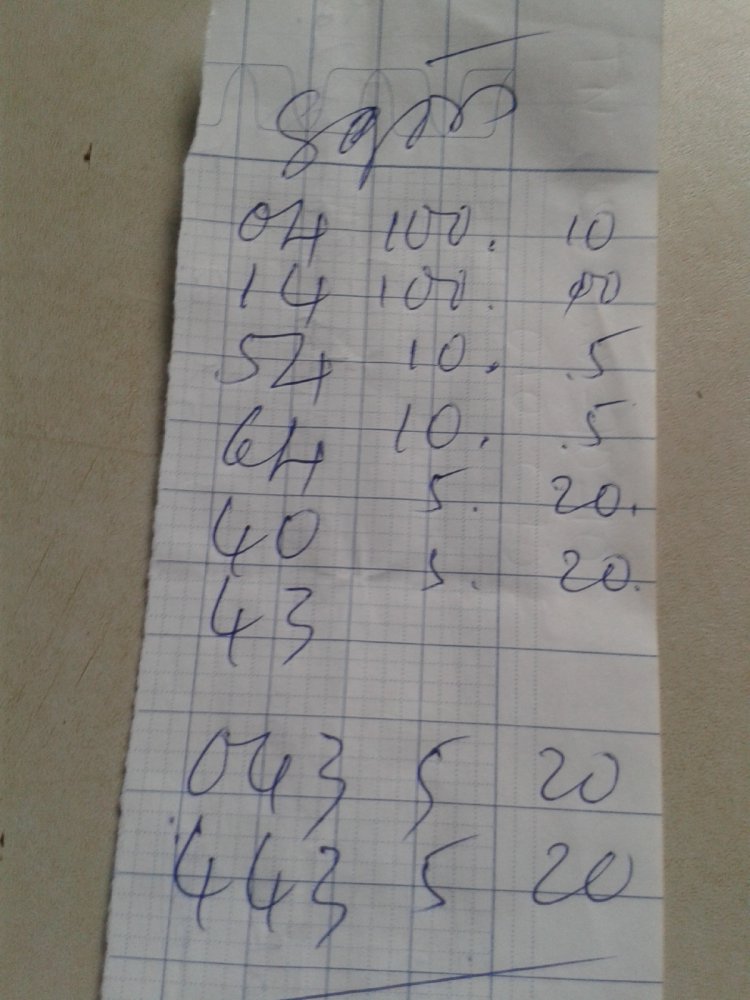 04 100. 10
14 100. 10
54 10. 5
64 10. 5
40 5. 20.
43 5. 20.
043 5 20
443 5 20